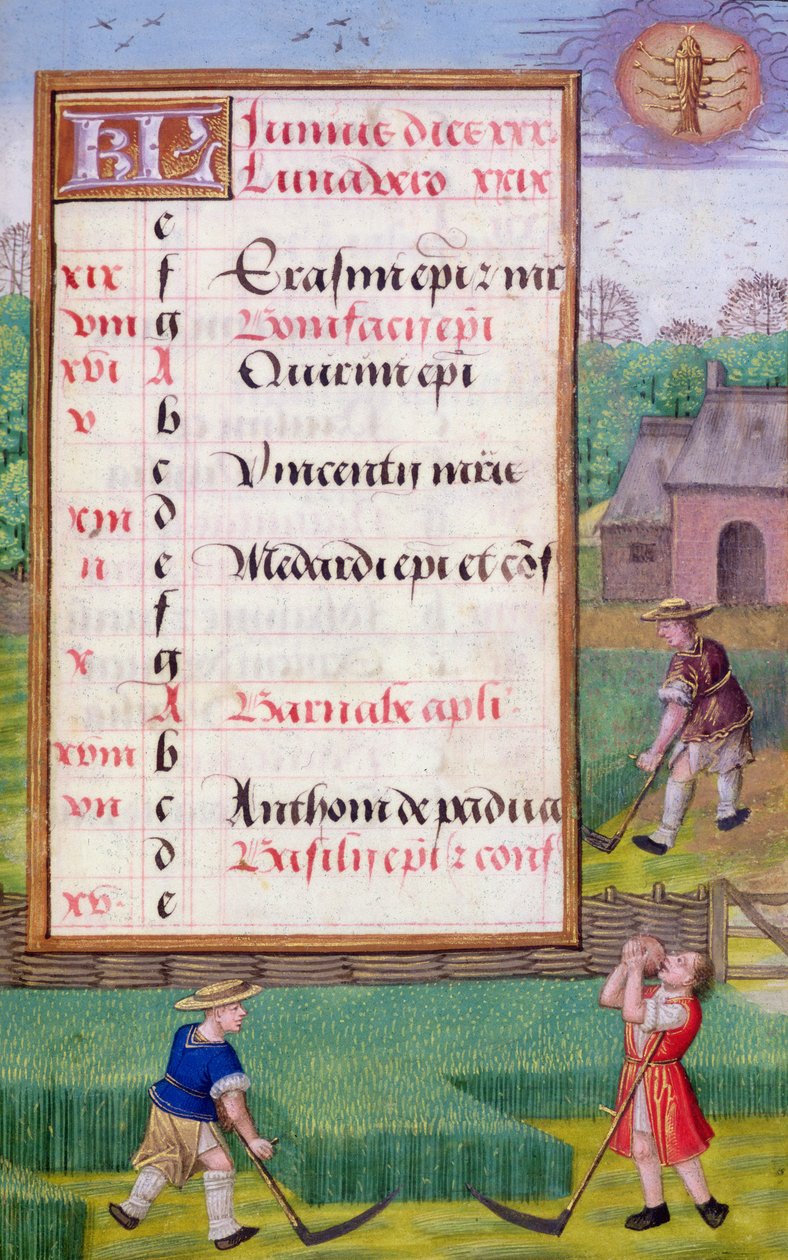 KL Junius dies xxx.
Luna vero xxix
e
xix f Erasmi epi z mr
viii g Bonifacij epi
xvi A Quirini epi
v b
c Vincentij mris
xiii d
ii e Medardi epi et cōs
f
x g
A Barnabe apli.
xviii b
vii c Anthoni de padua
d Basilij epi z cons
xv. e